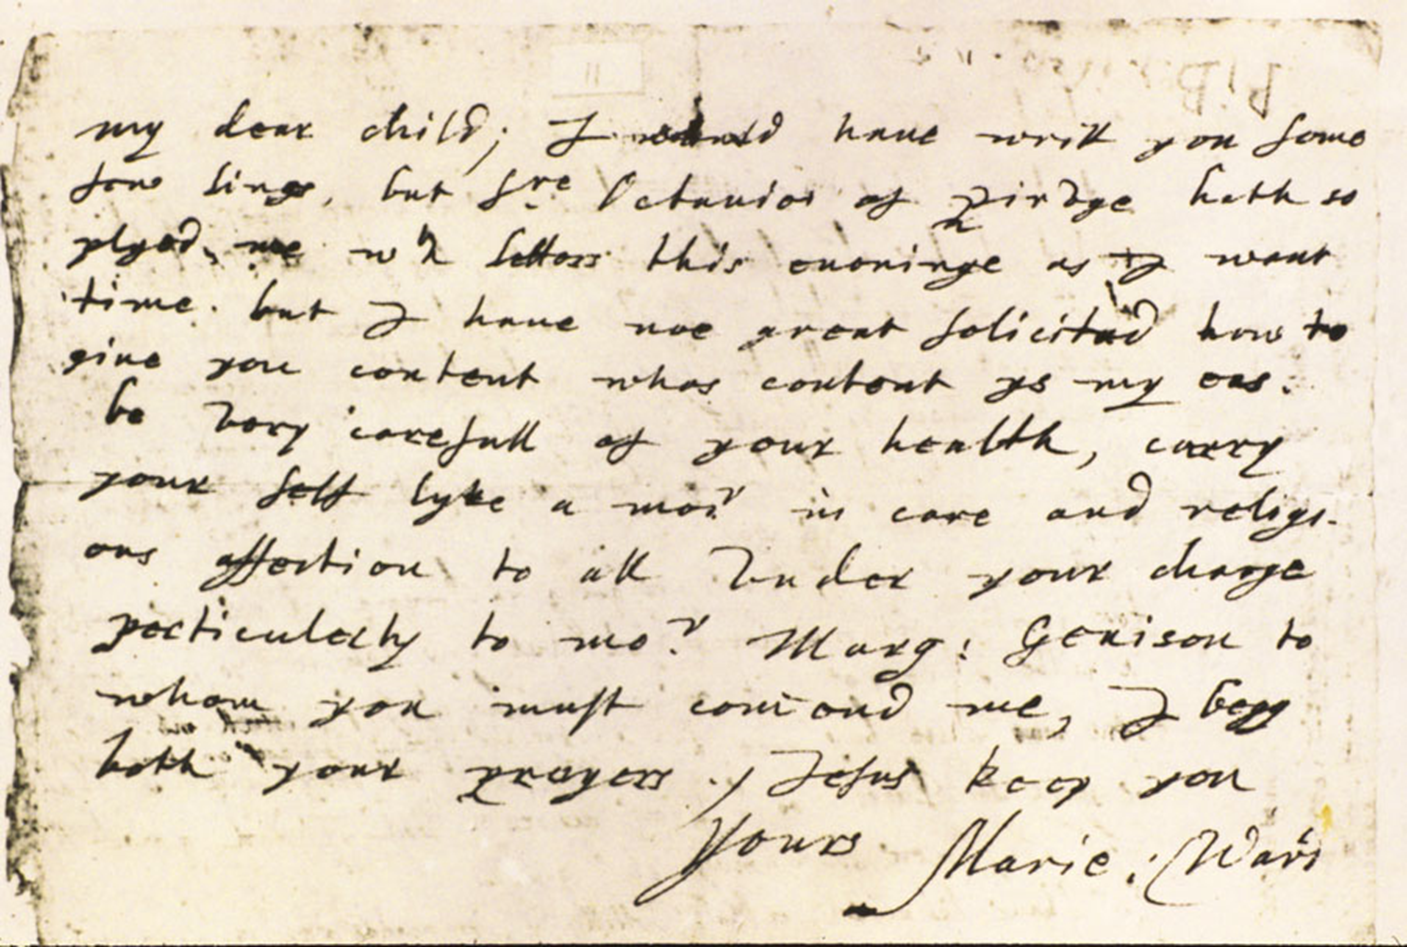 my dear child; I would have writ you some
few lings, but Sre Octauios of
plyed me wth letters this eueninge as I want
time. but I haue noe great solicitud how to
giue you content whos content ys my oes.
be very carefull of your health, carry
your self lyke a mor in care and religi-
ous affection to all vnder your charge
perticulerly to mor Marg: Genison to
whom you must comend me, I begg
both your prayers. Jesus keep you
Yours Marie: Ward